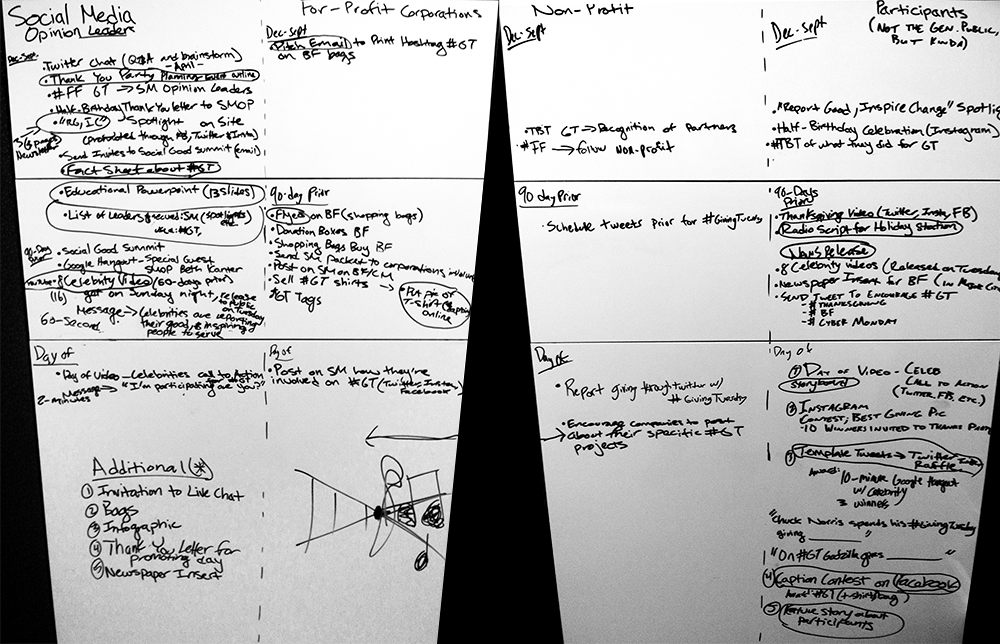 Social Media
Opinion Leaders
Dec-Sept.
• Twitter chat (Q&A and Brainstorm)
- April -
• Thank You Party Planning Event online
• #FF GT → SM Opinion Leaders
• Half-Birthday Thank You letter to SMOP
• "RG, IC" Spotlight on Site
(promoted through FB, Twitter & Insta)
• Send Invites to Social Good Summit (email)
• Fact Sheet about #GT
• Educational Powerpoint (13 slides)
• List of Leaders & secured: SM (spotlights etc.
#GT,
90-Day Prior
• Social Good Summit
• Google Hangout - Special Guest
SMOP Beth Kanter
• 8 Celebrity Video (60-days prior)
(16) got on Sunday night, release to public on Tuesday
Message → Celebrities are reporting
60-Second their good, & inspiring
people to serve
Day of
• Day of Video - Celebrities call to Action
for #GT
Message → "I'm participating are you?"
2-minutes
Additional (*)
① Invitation to Live Chat
② Bags
③ Infographic
④ Thank You Letter for
promoting day
⑤ Newspaper Insert
For-Profit Corporations
Dec-Sept
• Pitch Email to Print Hashtag #GT
on BF bags
90-day Prior
• on BF (shopping bags)
• Donation Boxes BF
• Shopping Bags Buy BF
• Send SM Packet to corporations involved
• Post on SM on BF/CM
• Sell #GT shirts →
• Put pic of
T-shirt
online
#GT Tags
Day of
• Post on SM how they're
involved on #GT (Twitter, Insta,
Facebook)
Non-Profit
Dec-Sept
• TBT GT → Recognition of Partners
• #FF → follow non-profit
90 day Prior
• Schedule tweets prior for #GivingTuesday
Day of
• Report giving through twitter w/
#GivingTuesday
• Encourage companies to post
about their specific #GT
projects
Participants
(NOT THE GEN. PUBLIC,
BUT KINDA)
Dec-Sept
• "Report Good, Inspire Change"
• Half-Birthday Celebration (Instagram)
• #TBT of what they did for GT
90-Days
Prior
• Thanksgiving Video (Twitter, Insta, FB)
• Radio Script for Holiday Station
News Release
• 8 Celebrity videos (Released on Tuesday
• Newspaper Insert for BF
• SEND TWEET TO ENCOURAGE #GT
- # THANKSGIVING
- # BF
- # CYBER MONDAY
Day of
① DAY OF VIDEO - CELEB
Storyboard CALL TO ACTION
(TWITTER, FB, ETC.)
② INSTAGRAM
CONTEST; BEST GIVING PIC
- 10 WINNERS INVITED TO THANKS
③ Template Tweets → Twitter
Raffle
Award: 10-minute Google Hangout
w/ celebrity
3 winners
"Chuck Norris spends his #GivingTuesday
giving ______"
"On #GT Godzilla goes ______"
④ Caption Contest on Facebook
Award: #GT (t-shirt/bag)
⑤ Feature story about
participants